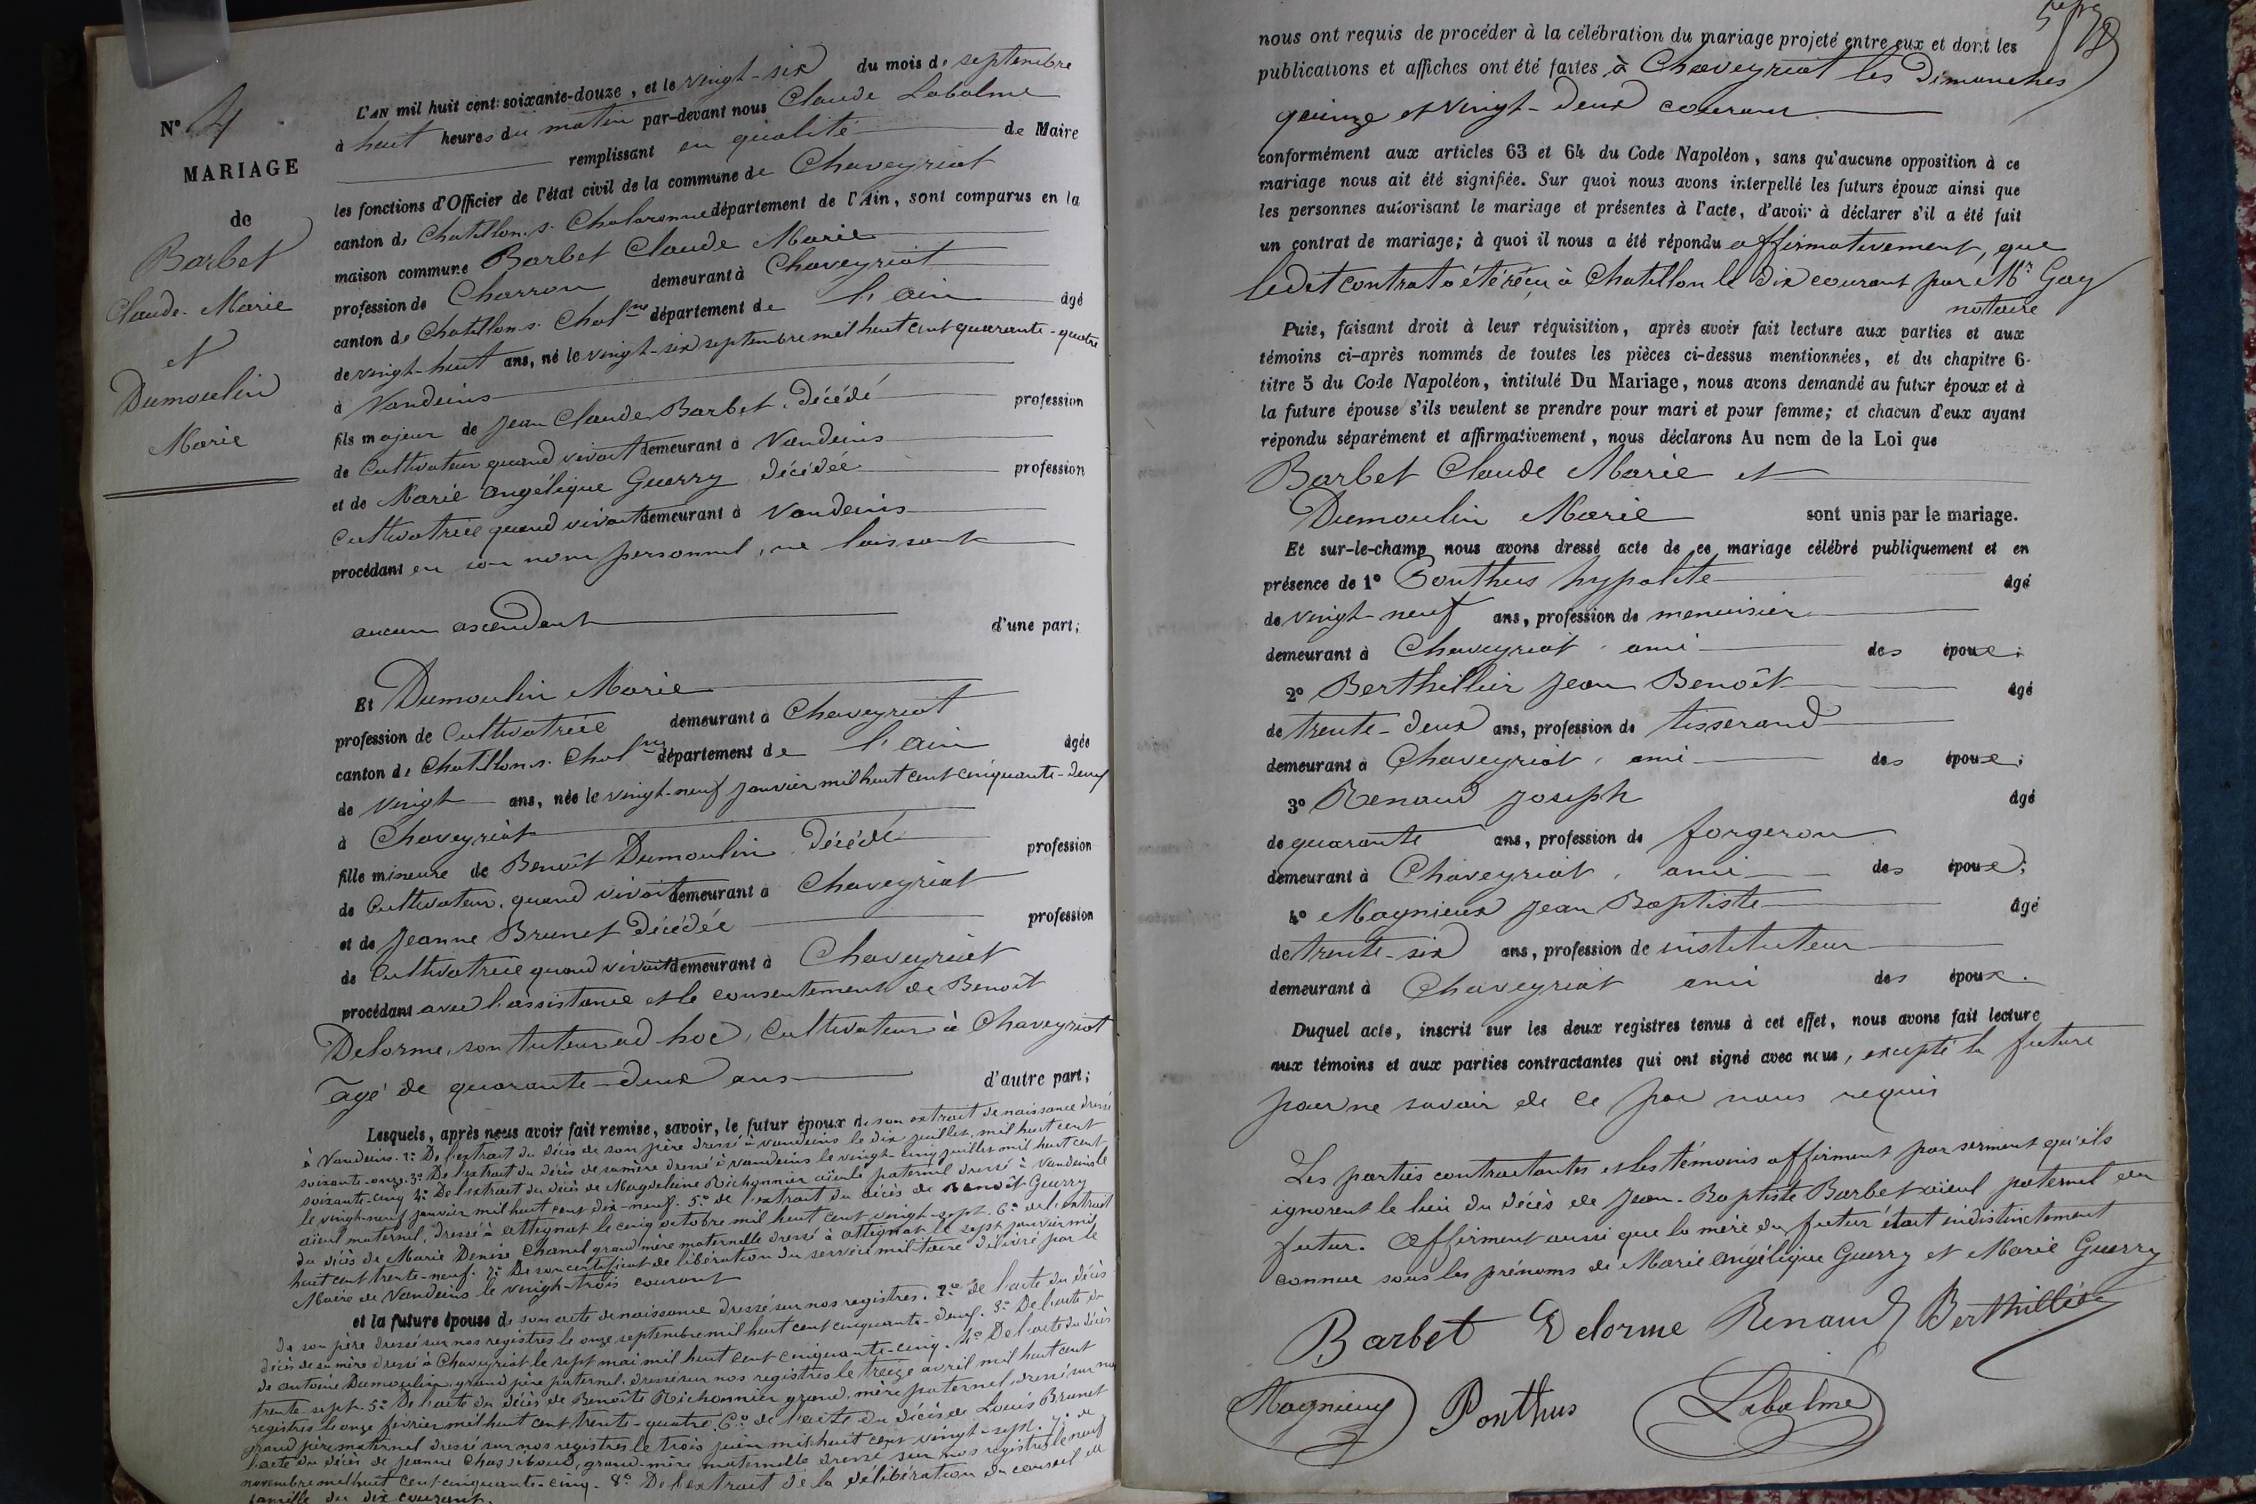 N° 4
MARIAGE
de
Barbet
Claude-Marie
et
Dumoulin
Marie
L'AN mil huit cent soixante-douze, et le vingt-six du mois de septembre
à huit heures du matin par-devant nous Claude Labalme
remplissant en qualité de Maire
les fonctions d'Officier de l'état civil de la commune de Chaveyriat
canton de Chatillon-s-Chalaronne département de l'Ain, sont comparus en la
maison commune Barbet Claude Marie
profession de Charron demeurant à Chaveyriat
canton de Chatillon-s-Chal.ne département de l'ain âgé
de vingt-huit ans, né le vingt-six septembre mil huit cent quarante-quatre
à Vandeins
fils majeur de Jean Claude Barbet, décédé profession
de Cultivateur quand vivait demeurant à Vandeins
et de Marie Angélique Guerry décédée profession
Cultivatrice quand vivait demeurant à Vandeins
procédant en son nom personnel, ne laissant
aucun ascendant d'une part;
Et Dumoulin Marie
profession de Cultivatrice demeurant à Chaveyriat
canton de Chatillon-s-Chal.ne département de l'ain âgée
de vingt ans, née le vingt-neuf janvier mil huit cent cinquante-deux
à Chaveyriat
fille mineure de Benoît Dumoulin, décédé profession
de Cultivateur, quand vivait demeurant à Chaveyriat
et de Jeanne Brunet décédée profession
de Cultivatrice quand vivait demeurant à Chaveyriat
procédant avec l'assistance et le consentement de Benoît
Delorme, son tuteur ad hoc, Cultivateur à Chaveyriat
âgé de quarante-deux ans d'autre part;
Lesquels, après nous avoir fait remise, savoir, le futur époux de son extrait de naissance dressé
à Vandeins. 2° De l'extrait du décès de son père dressé à Vandeins le dix juillet mil huit cent
soixante-onze. 3° De l'extrait du décès de sa mère dressé à Vandeins le vingt-cinq juillet mil huit cent
soixante-cinq 4° De l'extrait du décès de Magdeleine Michonnier aïeule paternel dressé à Vandeins le
le vingt-neuf janvier mil huit cent dix-neuf. 5° de l'extrait du décès de Benoît Guerry
aïeul maternel, dressé à attignat le cinq octobre mil huit cent vingt-sept. 6° de l'extrait
du décès de Marie Denise Chanel grand mère maternelle dressé à attignat le sept janvier mil
huit cent trente-neuf. 7° De son certificat de libération du service militaire délivré par le
Maire de Vandeins le vingt-trois courant
et la future épouse de son acte de naissance dressé sur nos registres. 2° de l'acte du décès
de son père dressé sur nos registres le onze septembre mil huit cent cinquante-deux. 3° De l'acte du
décès de sa mère dressé à Chaveyriat le sept mai mil huit cent cinquante-cinq. 4° De l'acte du décès
de antoine Dumoulin, grand père paternel, dressé sur nos registres le treize avril mil huit cent
trente-sept. 5° De l'acte du décès de Benoîte Michonnier grand mère paternel, dressé sur nos
registres le onze février mil huit cent trente-quatre. 6° de l'acte du décès de Louis Brunet
grand père maternel dressé sur nos registres le trois juin mil huit cent vingt-sept. 7° de
l'acte du décès de Jeanne grand-mère maternelle dressé sur nos registres le neuf
novembre mil huit cent cinquante-cinq. 8° De l'extrait de la délibération du conseil de
famille du dix courant.
nous ont requis de procéder à la célébration du mariage projeté entre eux et dont les
publications et affiches ont été faites à Chaveyriat les Dimanches
quinze et vingt-deux courant
conformément aux articles 63 et 64 du Code Napoléon, sans qu'aucune opposition à ce
mariage nous ait été signifiée. Sur quoi nous avons interpellé les futurs époux ainsi que
les personnes autorisant le mariage et présentes à l'acte, d'avoir à déclarer s'il a été fait
un contrat de mariage; à quoi il nous a été répondu affirmativement, que
ledit contrat a été réçu à Chatillon le dix courant par Mr Gay
notaire
Puis, faisant droit à leur réquisition, après avoir fait lecture aux parties et aux
témoins ci-après nommés de toutes les pièces ci-dessus mentionnées, et du chapitre 6
titre 5 du Code Napoléon, intitulé Du Mariage, nous avons demandé au futur époux et à
la future épouse s'ils veulent se prendre pour mari et pour femme; et chacun d'eux ayant
répondu séparément et affirmativement, nous déclarons Au nom de la Loi que
Barbet Claude Marie et
Dumoulin Marie sont unis par le mariage.
Et sur-le-champ nous avons dressé acte de ce mariage célébré publiquement et en
présence de 1° Ponthus hypolite âgé
de vingt-neuf ans, profession de menuisier
demeurant à Chaveyriat, ami des époux;
2° Berthillier Jean Benoît âgé
de trente-deux ans, profession de tisserand
demeurant à Chaveyriat, ami des époux;
3° Renaud Joseph âgé
de quarante ans, profession de forgeron
demeurant à Chaveyriat, ami des époux;
4° Magnieux Jean Baptiste âgé
de trente-six ans, profession de instituteur
demeurant à Chaveyriat ami des époux.
Duquel acte, inscrit sur les deux registres tenus à cet effet, nous avons fait lecture
aux témoins et aux parties contractantes qui ont signé avec nous, excepté la future
pour ne savoir de ce par nous requis
Les parties contractantes et les témoins affirment par serment qu'ils
ignorent le lieu du décès de Jean-Baptiste Barbet aïeul paternel du
futur. Affirment aussi que la mère du futur était indistinctement
connue sous les prénoms de Marie Angélique Guerry et Marie Guerry
Barbet Delorme Renaud Berthillier
Magnieux Ponthus Labalme